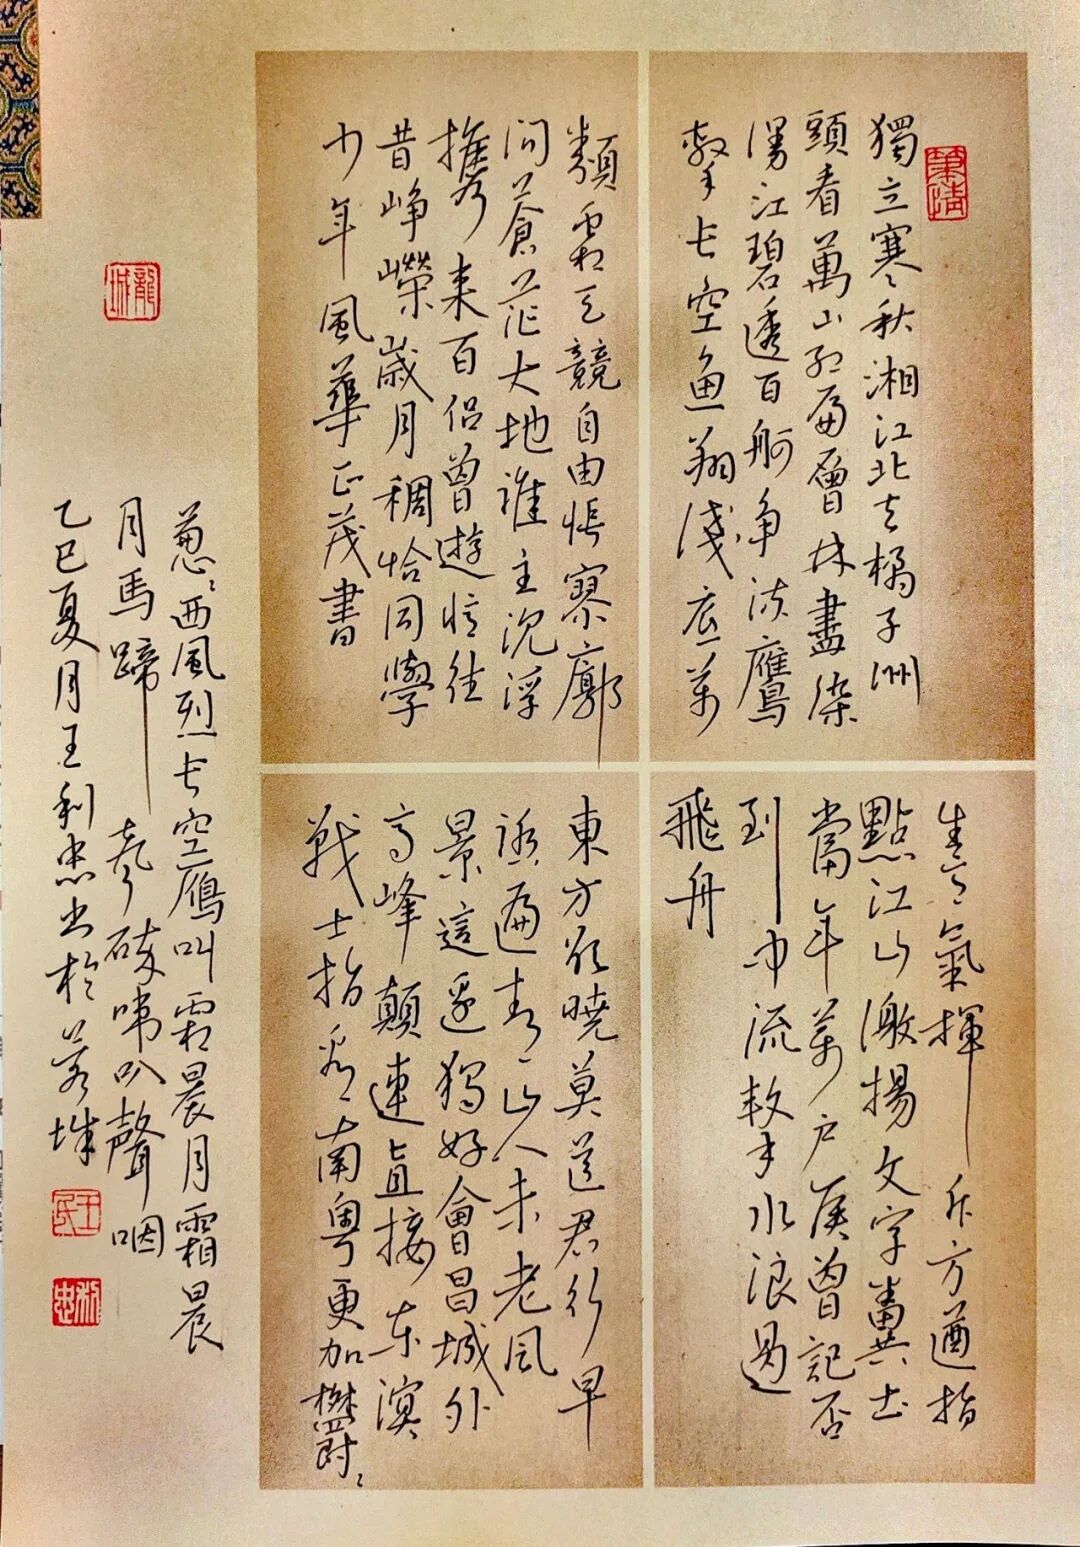 獨立寒秋湘江北去橘子洲
頭看萬山紅遍層林盡染
漫江碧透百舸争流鷹
擊長空魚翔淺底萬
類霜天競自由悵寥廓
問蒼茫大地誰主沉浮
攜來百侣曾遊憶往
昔峥嶸歲月稠恰同學
少年風華正茂書
生意氣揮斥方遒指
點江山激揚文字糞土
當年萬户侯曾記否
到中流擊水浪遏
飛舟
東方欲曉莫道君行早
踏遍青山人未老風
景這邊獨好會昌城外
高峰顛連直接東溟
戰士指看南粤更加鬱〻
葱〻西風烈長空雁叫霜晨月霜晨
月馬蹄聲碎喇叭聲咽
乙巳夏月王利忠书於城
龍城
王氏
利忠